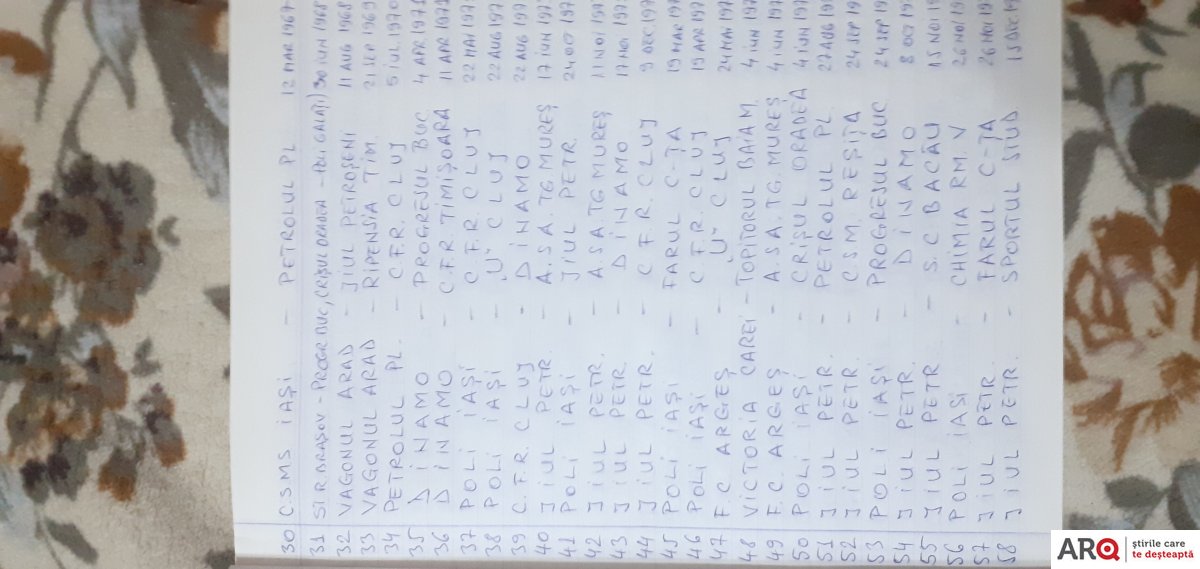 30 C.S.M.S IAȘI - PETROLUL PL 12 MAR 1967
31 ST.R.BRAȘOV - PROGR BUC, CRIȘUL ORADEA - POLI GALAȚI) 30 IUN 1968
32 VAGONUL ARAD - JIUL PETROȘENI 11 AUG 1968
33 VAGONUL ARAD - RIPENSIA TIM. 21 SEP 1969
34 PETROLUL PL. - C.F.R. CLUJ 5 IUL 1970
35 DINAMO - PROGRESUL BUC 4 APR 1971
36 DINAMO - C.F.R. TIMIȘOARA 11 APR
37 POLI IAȘI - C.F.R. CLUJ 22 MAI
38 POLI IAȘI - "U" CLUJ 22 AUG
39 C.F.R. CLUJ - DINAMO 22 AUG
40 JIUL PETR. - A.S.A. TG.MUREȘ 17 IUN
41 POLI IAȘI - JIUL PETR. 24 OCT
42 JIUL PETR. - A.S.A. TG MUREȘ 11 NOI
43 JIUL PETR. - DINAMO NOI
44 JIUL PETR. - C.F.R. CLUJ 9 DEC
45 POLI IAȘI - FARUL C-ȚA 19 MAR
46 POLI IAȘI - C.F.R. CLUJ 19 APR
47 F.C. ARGEȘ - "U" CLUJ 24 MAI
48 VICTORIA CAREI - TOPITORUL BAIA M. 4 IUN
49 F.C. ARGEȘ - A.S.A. TG. MUREȘ 4 IUN
50 POLI IAȘI - CRIȘUL ORADEA 4 IUN
51 JIUL PETR. - PETROLUL PL. 27 AUG
52 JIUL PETR. - C.S.M. REȘIȚA 24 SEP
53 POLI IAȘI - PROGRESUL BUC 24 SEP
54 JIUL PETR. - DINAMO 8 OCT
55 JIUL PETR - S.C. BACĂU 15 NOI
56 POLI IAȘI - CHIMIA RM. V 26 NOI
57 JIUL PETR. - FARUL C-ȚA 26 NOI
58 JIUL PETR. - SPORTUL STUD DEC
ARQ știrile care
te deșteaptă